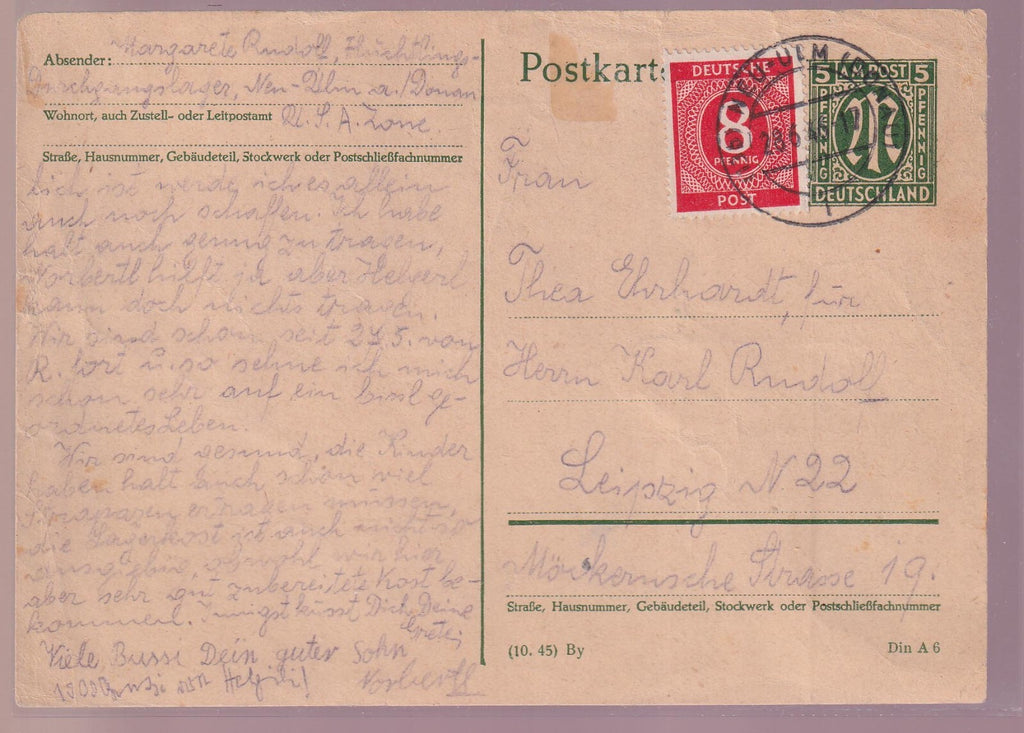 Absender: Margarete Rudolf, Flüchtlings-
Durchgangslager, Neu-Ulm a./Donau
Wohnort, auch Zustell- oder Leitpostamt U.S.A. Zone
Straße, Hausnummer, Gebäudeteil, Stockwerk oder Postschließfachnummer
ist werde ich es allein
auch noch schaffen. Ich habe
halt auch genug zu tragen,
Norbertl hilft ja aber Helgerl
kann doch nichts tragen.
Wir sind schon seit 27.5. von
R. fort u. so sehne ich mich
schon sehr auf ein bissl ge-
ordnetes Leben.
Wir sind gesund, die Kinder
haben halt auch schon viel
Strapazen ertragen müssen,
die Lagerkost ist auch nicht so
ausgiebig, obwohl wir hier
aber sehr gut zubereitete Kost be-
kommen. Innigst küsst Dich Deine
Gretel
Viele Bussi Dein guter Sohn
Norbertl
1000 Bussi von
Postkarte
DEUTSCHE
8
PFENNIG
POST
5 AM POST 5
PFENNIG
PFENNIG
M
DEUTSCHLAND
ULM
Frau
Thea Ehrhardt, für
Herrn Karl Rudolf
Leipzig N 22
Möckernsche Strasse 19.
Straße, Hausnummer, Gebäudeteil, Stockwerk oder Postschließfachnummer
(10. 45) By
Din A 6